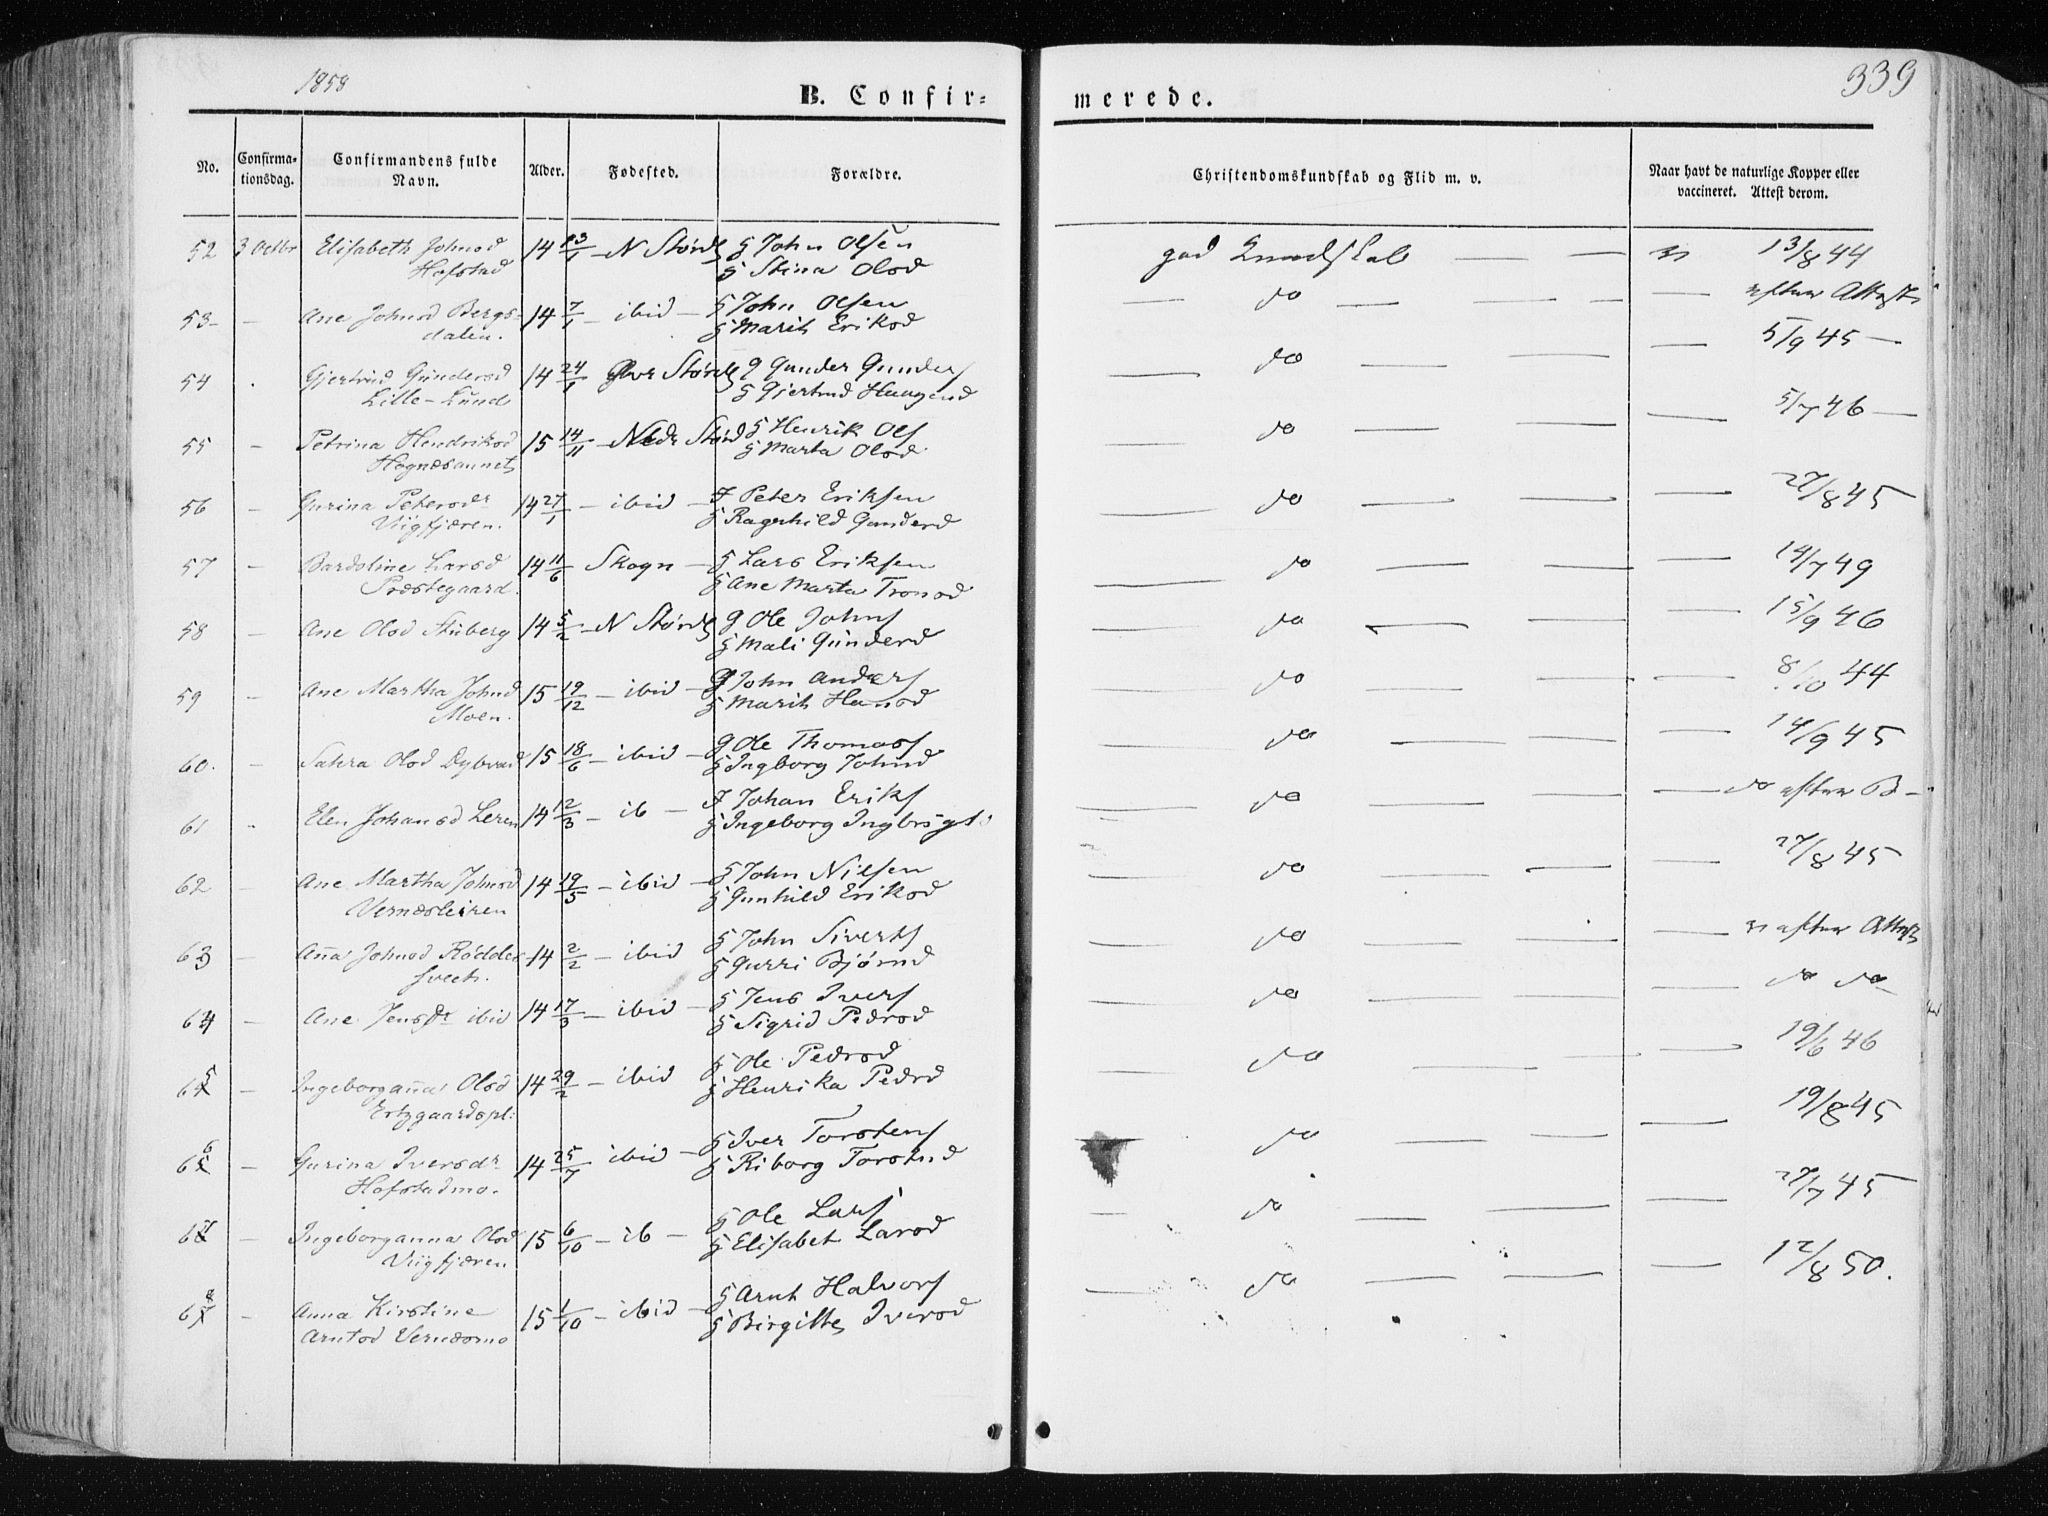 1858
B. Confir-
merede.
339
No.
Confirma-
tionsdag.
Confirmandens fulde
Navn.
Alder.
Fødested.
Forældre.
Christendomskundskab og Flid m. v.
Naar havt de naturlige Kopper eller
vaccineret. Attest derom.
52 3 Octbr Elisabeth Johnsd 14 13/1 N Størd g John Olsen god Kundskab — — 13/8 44
Hofstad g Stina Olsd
53 - - Ane Johnsd Bergs- 14 7/1 - ibid - g John Olsen — do — — — — efter Attest
dalen. g Marit Eriksd
54 - Gjertrud Gundersd 14 24/1 Øvr Størd g Gunder Gunders — do — — — 5/9 45 —
Lille-Lund g Gjertrud Haagend
55 - Petrina Hendriksd 15 14/11 - Nedr Størd g Henrik Ols — do — — — 5/7 46 —
g Marta Olsd
56 - Gurina Petersdr 14 27/1 - ibid - F Peter Eriksen — do — — — 27/8 45
Viigfjæren. g Ragnhild Gunderd
57 - Bardoline Larsd 14 11/6 Skogn - g Lars Eriksen — do — — — 14/7 49
Præstegaard. g Ane Marta Tronsd
58 - Ane Olsd Stuberg 14 5/2 - N Størd g Ole Johns — do — — — 15/9 46
g Mali Gunderd
59 - Ane Martha Johnsd 15 19/12 - ibid - g John Anders — do — — — 8/10 44
Moen. g Marit Hansd
60. - Olsd Dybvad 15 18/6 - ibid - g Ole Thomas — do — — — 14/9 45
g Ingborg Johnsd
61 - Elen Johansd Leren 14 12/3 - ib - F Johan Eriks — do — — — do efter B -
g Ingeborg
62 - Ane Martha Johnsd 14 19/5 - ibid - g John Nilsen — do — — — 27/8 45
Vernæsleiren g Gunhild Eriksd
63 - Anna Johnsd Rødde- 14 2/2 - ibid g John Siverts — do — — — efter Attest
sveet. g Gurri Bjørnd
64 - Ane Jensdr ibid 14 17/3 - ibid - g Jens Ivers — do — — — do do
g Sigrid Pedrsd
65 - Ingeborganna Olsd 14 29/2 - ibid g Ole Pedrsd — do — — — 19/6 46
Ertzgaardspl: g Henrika Pedrd
66 - Gurina Iversdr 14 25/7 ibid - g Iver Torstens — do — — — 19/8 45
Hofstadmo. g Riborg Torstend
67 - Ingeborganna Olsd 15 6/10 - ib - g Ole Lars — do — — — 27/7 45
Viigfjæren g Elisabet Larsd
68 - Anna Kirstine 15 1/10 - ibid - g Arnt Halvors — do — — — 12/8 50.
Arntsd Vernæsmo g Birgitte Iversd